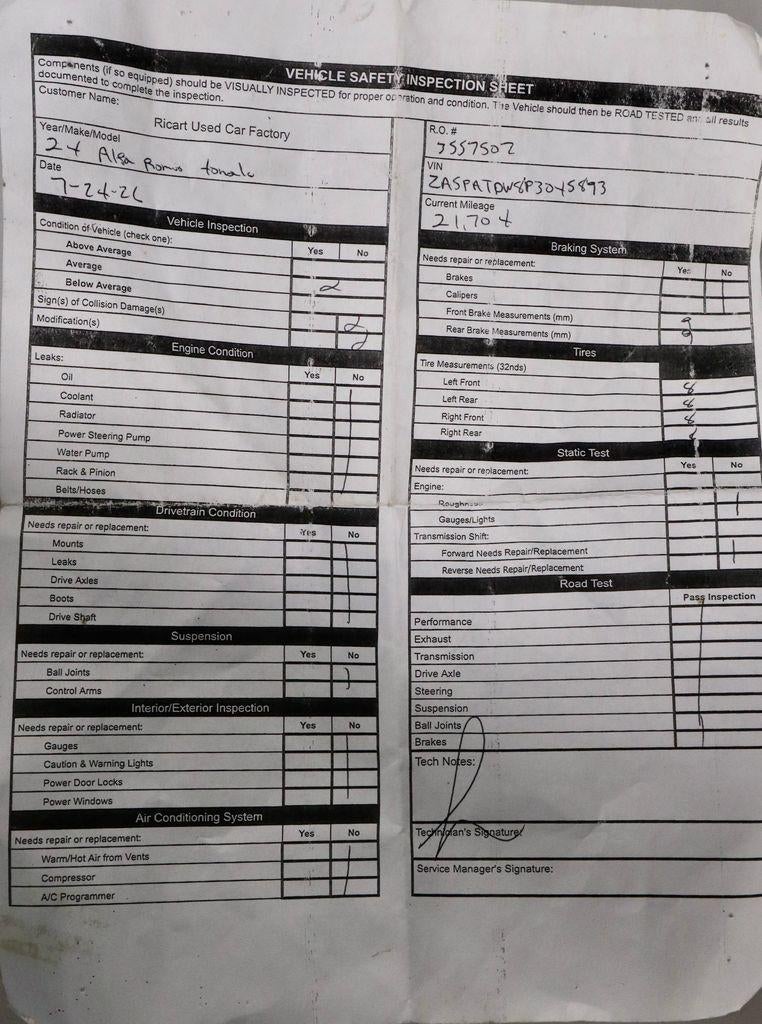 VEHICLE SAFETY INSPECTION SHEET
Components (if so equipped) should be VISUALLY INSPECTED for proper operation and condition. The Vehicle should then be ROAD TESTED and all results
documented to complete the inspection.
Customer Name:
Ricart Used Car Factory
Year/Make/Model
24 Alfa Romeo tonale
Date
7-24-26
R.O. #
3557502
VIN
ZASPATDW8P3045893
Current Mileage
21,704
Vehicle Inspection
Condition of Vehicle (check one): Yes No
Above Average
Average
Below Average
Sign(s) of Collision Damage(s)
Modification(s)
Engine Condition
Leaks: Yes No
Oil
Coolant
Radiator
Power Steering Pump
Water Pump
Rack & Pinion
Belts/Hoses
Drivetrain Condition
Needs repair or replacement: Yes No
Mounts
Leaks
Drive Axles
Boots
Drive Shaft
Suspension
Needs repair or replacement: Yes No
Ball Joints
Control Arms
Interior/Exterior Inspection
Needs repair or replacement: Yes No
Gauges
Caution & Warning Lights
Power Door Locks
Power Windows
Air Conditioning System
Needs repair or replacement: Yes No
Warm/Hot Air from Vents
Compressor
A/C Programmer
Braking System
Needs repair or replacement: Yes No
Brakes
Calipers
Front Brake Measurements (mm) 9
Rear Brake Measurements (mm) 9
Tires
Tire Measurements (32nds)
Left Front 8
Left Rear 8
Right Front 8
Right Rear 8
Static Test
Needs repair or replacement: Yes No
Engine:
Roughness
Gauges/Lights
Transmission Shift:
Forward Needs Repair/Replacement
Reverse Needs Repair/Replacement
Road Test
Pass Inspection
Performance
Exhaust
Transmission
Drive Axle
Steering
Suspension
Ball Joints
Brakes
Tech Notes:
Technician's Signature:
Service Manager's Signature: